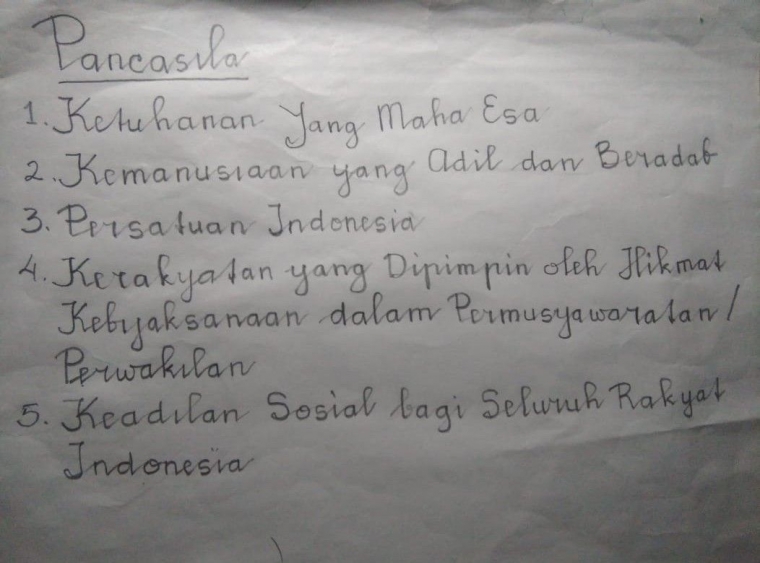 Pancasila
1. Ketuhanan Yang Maha Esa
2. Kemanusiaan yang Adil dan Beradab
3. Persatuan Indonesia
4. Kerakyatan yang Dipimpin oleh Hikmat
Kebijaksanaan dalam Permusyawaratan/
Perwakilan
5. Keadilan Sosial bagi Seluruh Rakyat
Indonesia